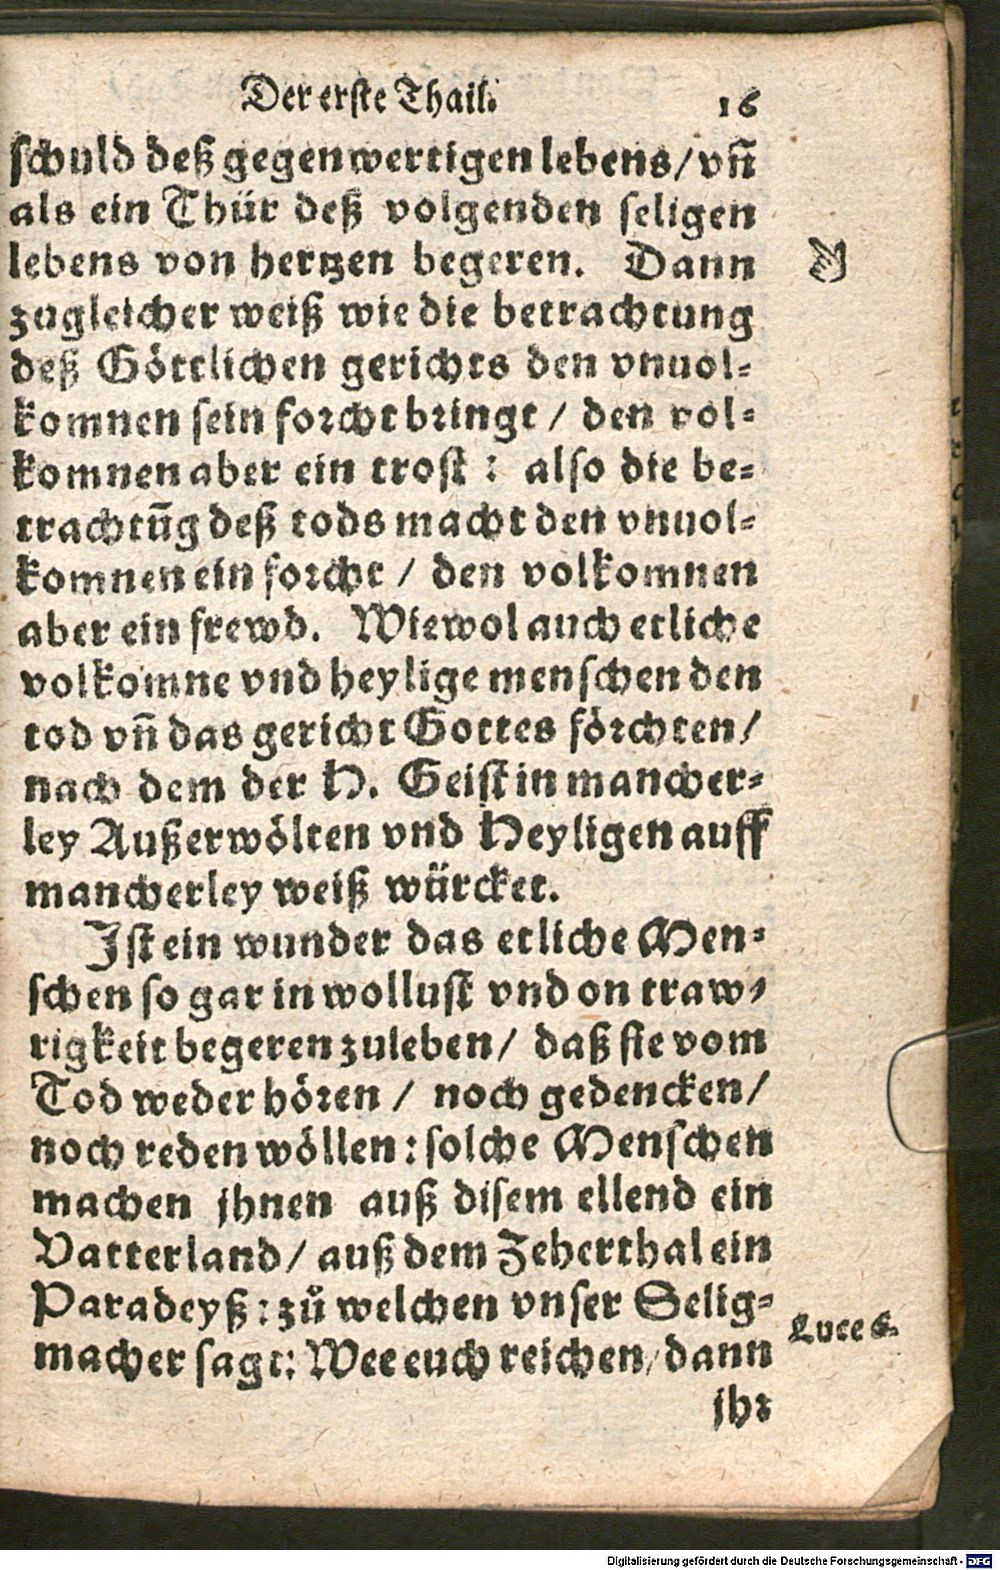 Der erste Thail. 16
schuld deß gegenwertigen lebens/ vñ
als ein Thür deß volgenden seligen
lebens von hertzen begeren. Dann
zugleicher weiß wie die betrachtung
deß Göttlichen gerichts den vnuol-
komnen sein forcht bringt / den vol-
komnen aber ein trost : also die be-
trachtũg deß tods macht den vnuol-
komnen ein forcht / den volkomnen
aber ein frewd. Wiewol auch etliche
volkomne vnd heylige menschen den
tod vñ das gericht Gottes förchten/
nach dem der H. Geist in mancher-
ley Außerwölten vnd Heyligen auff
mancherley weiß würcket.
Ist ein wunder das etliche Men-
schen so gar in wollust vnd on traw-
rigkeit begeren zuleben/ daß sie vom
Tod weder hören / noch gedencken/
noch reden wöllen: solche Menschen
machen jhnen auß disem ellend ein
Vatterland/ auß dem Zeherthal ein
Paradeyß: zů welchen vnser Selig-
macher sagt: Wee euch reichen/ dann
Luce 6.
jhr
Digitalisierung gefördert durch die Deutsche Forschungsgemeinschaft - DFG